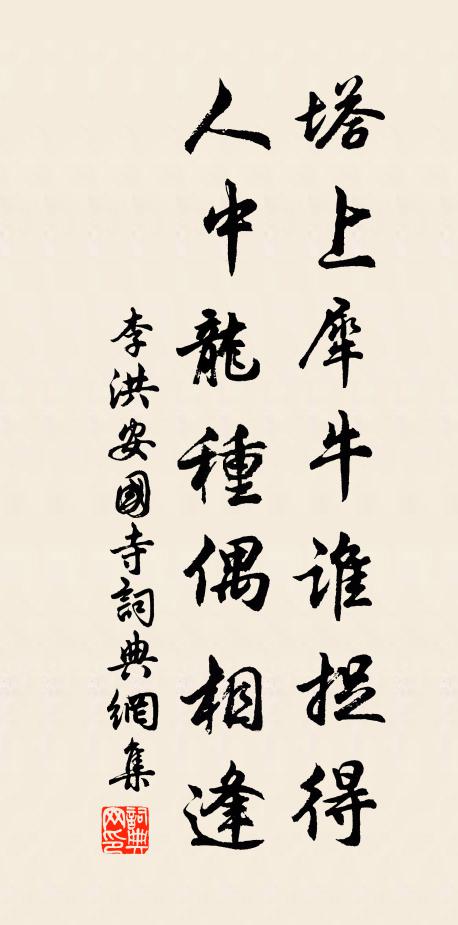 塔上犀牛誰捉得
人中龍種偶相逢
李洪安國寺詞典網集
詞典网印